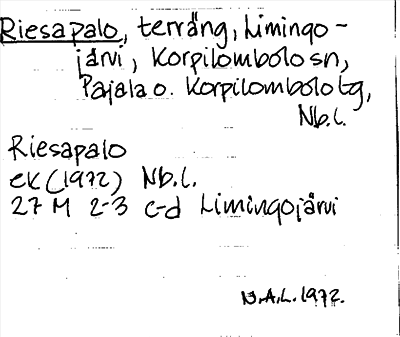 Riesapalo, terräng, Limingo-
järvi, Korpilombolo sn,
Pajala o. Korpilombolo tg,
Nb.l.
Riesapalo
ek (1972) Nb.l.
27 M 2-3 c-d Limingojärvi
N.A.L. 1972.